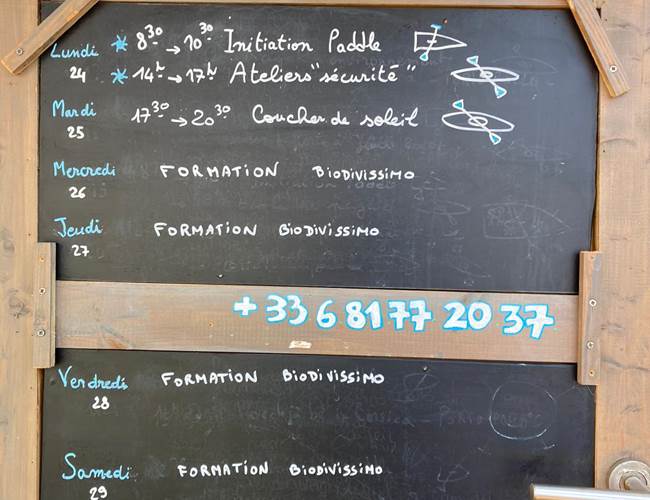 Lundi * 8 30 → 10 30 Initiation Paddle
24 * 14h → 17h Ateliers "sécurité"
Mardi 17 30 → 20 30 Coucher de soleil
25
Mercredi FORMATION BiODiViSSiMO
26
Jeudi FORMATION BiODiViSSiMO
27
+33 6 81 77 20 37
Vendredi FORMATION BiODiViSSiMO
28
Samedi FORMATION BiODiViSSiMO
29